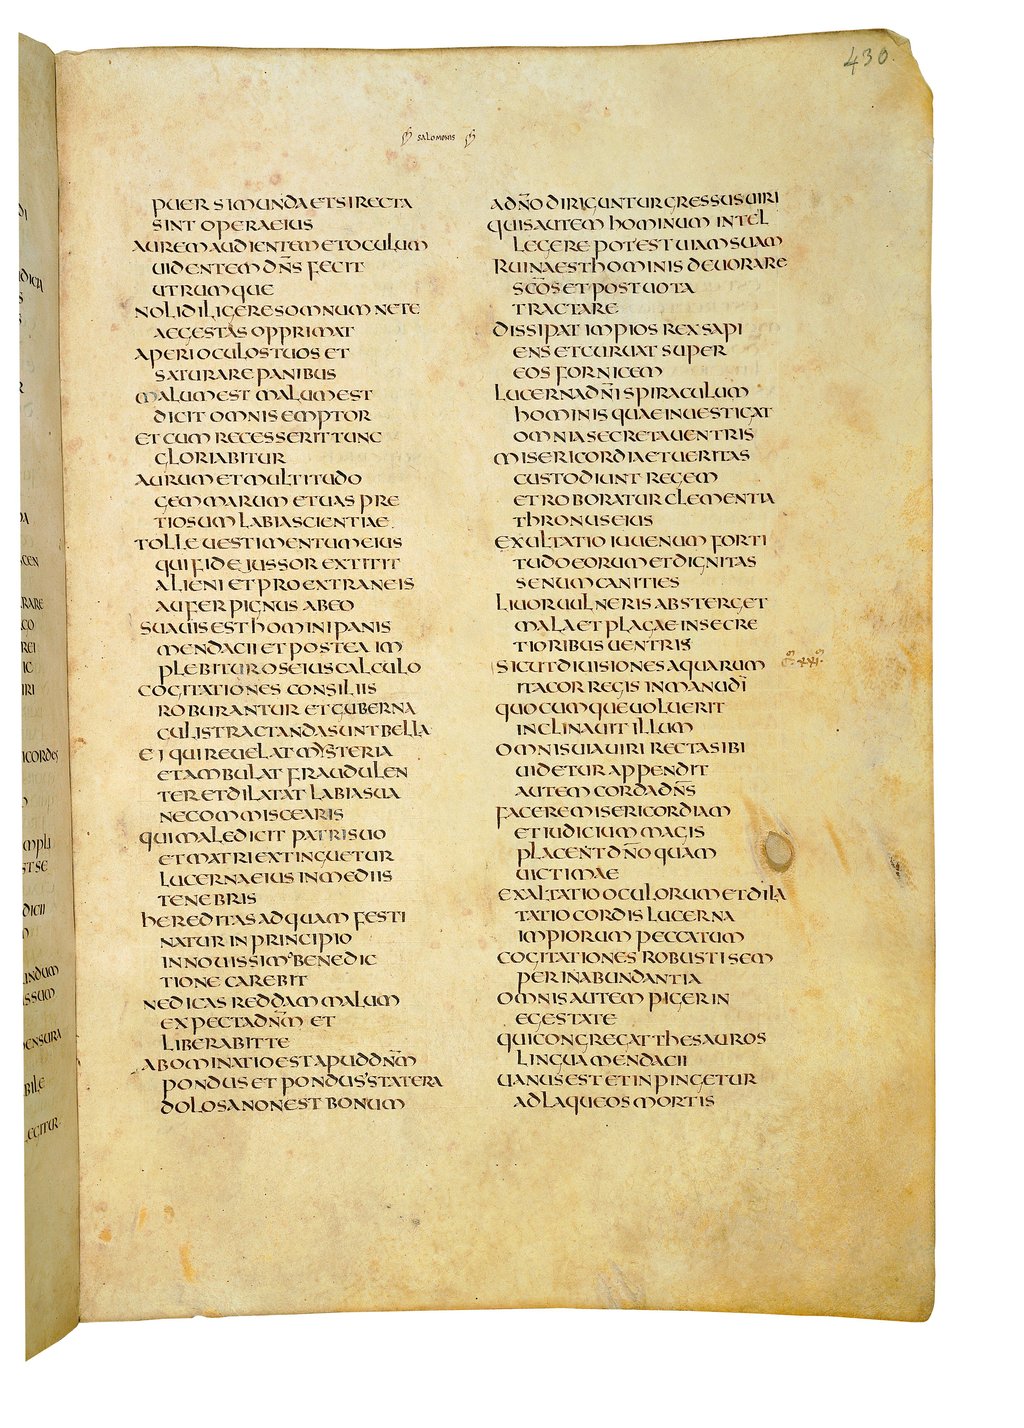 430
SALOMONIS
PUER SI MUNDA ET SI RECTA
SINT OPERA EIUS
AUREM AUDIENTEM ET OCULUM
UIDENTEM DN̄S FECIT
UTRUMQUE
NOLI DILIGERE SOMNUM NE TE
AEGESTAS OPPRIMAT
APERI OCULOS TUOS ET
SATURARE PANIBUS
MALUM EST MALUM EST
DICIT OMNIS EMPTOR
ET CUM RECESSERIT TUNC
GLORIABITUR
AURUM ET MULTITUDO
GEMMARUM ET UAS PRE
TIOSUM LABIA SCIENTIAE
TOLLE UESTIMENTUM EIUS
QUI FIDEJUSSOR EXTITIT
ALIENI ET PRO EXTRANEIS
AUFER PIGNUS AB EO
SUAUIS EST HOMINI PANIS
MENDACII ET POSTEA IM
PLEBITUR OS EIUS CALCULO
COGITATIONES CONSILIIS
ROBURANTUR ET GUBERNA
CULIS TRACTANDA SUNT BELLA
EI QUI REUELAT MYSTERIA
ET AMBULAT FRAUDULEN
TER ET DILATAT LABIA SUA
NE COMMISCEARIS
QUI MALEDICIT PATRI SUO
ET MATRI EXTINGUETUR
LUCERNA EIUS IN MEDIIS
TENEBRIS
HEREDITAS AD QUAM FESTI
NATUR IN PRINCIPIO
IN NOUISSIMO BENEDIC
TIONE CAREBIT
NE DICAS REDDAM MALUM
EXPECTA DN̄M ET
LIBERABIT TE
ABOMINATIO EST APUD DN̄M
PONDUS ET PONDUS STATERA
DOLOSA NON EST BONUM
A DN̄O DIRIGUNTUR GRESSUS UIRI
QUIS AUTEM HOMINUM INTEL
LEGERE POTEST UIAM SUAM
RUINA EST HOMINIS DEUORARE
SC̄OS ET POST UOTA
TRACTARE
DISSIPAT IMPIOS REX SAPI
ENS ET CURUAT SUPER
EOS FORNICEM
LUCERNA DN̄I SPIRACULUM
HOMINIS QUAE INUESTIGAT
OMNIA SECRETA UENTRIS
MISERICORDIA ET UERITAS
CUSTODIUNT REGEM
ET ROBORATUR CLEMENTIA
THRONUS EIUS
EXULTATIO IUUENUM FORTI
TUDO EORUM ET DIGNITAS
SENUM CANITIES
LIUOR UULNERIS ABSTERGET
MALA ET PLAGAE IN SECRE
TIORIBUS UENTRIS
SICUT DIUISIONES AQUARUM
ITA COR REGIS IN MANU DĪ
QUOCUMQUE UOLUERIT
INCLINAUIT ILLUM
OMNIS UIA UIRI RECTA SIBI
UIDETUR APPENDIT
AUTEM CORDA DN̄S
FACERE MISERICORDIAM
ET IUDICIUM MAGIS
PLACENT DN̄O QUAM
UICTIMAE
EXALTATIO OCULORUM ET DILA
TATIO CORDIS LUCERNA
IMPIORUM PECCATUM
COGITATIONES ROBUSTI SEM
PER IN ABUNDANTIA
OMNIS AUTEM PIGER IN
EGESTATE
QUI CONGREGAT THESAUROS
LINGUA MENDACII
UANUS EST ET INPINGETUR
AD LAQUEOS MORTIS